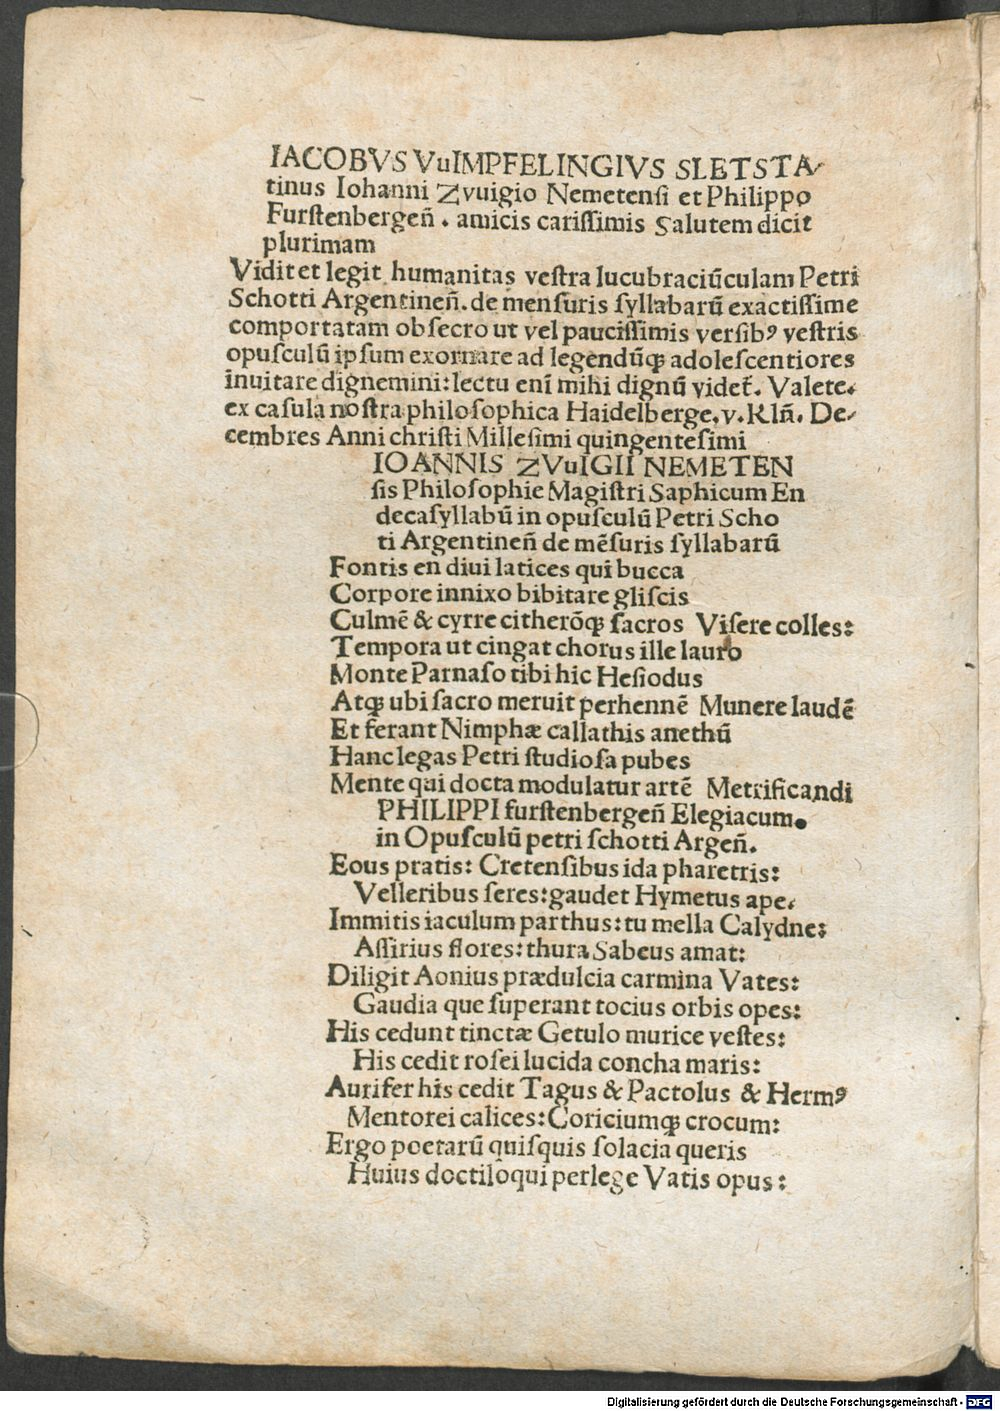 IACOBVS VuIMPFELINGIVS SLETSTA⸗
tinus Iohanni Zvuigio Nemetensi et Philippo
Furſtenbergeñ . amicis cariſſimis Salutem dicit
plurimam
Vidit et legit humanitas veſtra lucubraciũculam Petri
Schotti Argentineñ. de menſuris ſyllabarũ exactiſſime
comportatam obſecro ut vel pauciſſimis verſibꝰ veſtris
opuſculũ ipſum exornare ad legendũqꝫ adoleſcentiores
inuitare dignemini: lectu eni᷈ mihi dignũ videt᷑. Valete.
ex caſula noſtra philoſophica Haidelberge. v. Klñ. De⸗
cembres Anni chriſti Milleſimi quingenteſimi
IOANNIS ZVuIGII NEMETEN
ſis Philoſophie Magiſtri Saphicum En
decaſyllabũ in opuſculũ Petri Scho
ti Argentineñ de mẽſuris ſyllabarũ
Fontis en diui latices qui bucca
Corpore innixo bibitare gliſcis
Culmẽ & cyrre citherõqꝫ ſacros Viſere colles:
Tempora ut cingat chorus ille lauro
Monte Parnaſo tibi hic Heſiodus
Atqꝫ ubi ſacro meruit perhennẽ Munere laudẽ
Et ferant Nimphæ callathis anethũ
Hanc legas Petri ſtudioſa pubes
Mente qui docta modulatur artẽ Metrificandi
PHILIPPI furſtenbergeñ Elegiacum.
in Opuſculũ petri ſchotti Argeñ.
Eous pratis: Cretenſibus ida pharetris:
Velleribus ſeres: gaudet Hymetus ape.
Immitis iaculum parthus: tu mella Calydne:
Aſſirius flores: thura Sabeus amat:
Diligit Aonius prædulcia carmina Vates:
Gaudia que ſuperant tocius orbis opes:
His cedunt tinctæ Getulo murice veſtes:
His cedit roſei lucida concha maris:
Aurifer his cedit Tagus & Pactolus & Hermꝰ
Mentorei calices: Coriciumqꝫ crocum:
Ergo poetarũ quiſquis ſolacia queris
Huius doctiloqui perlege Vatis opus:
Digitalisierung gefördert durch die Deutsche Forschungsgemeinschaft - DFG